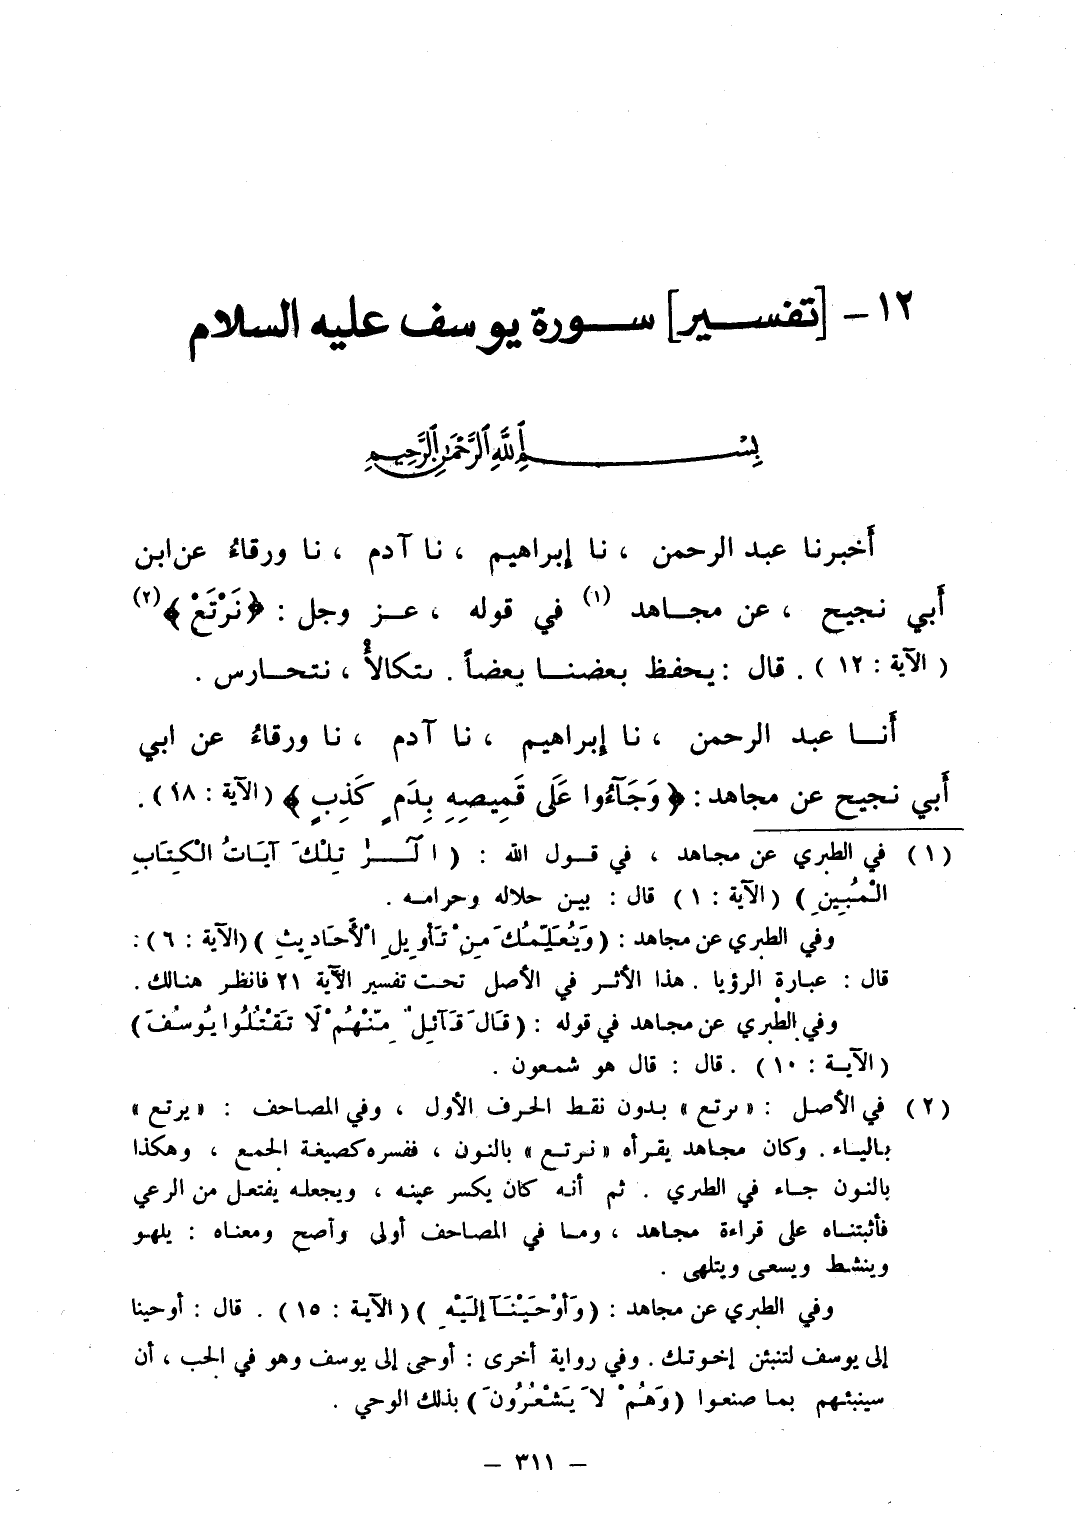 ١٢ - [تفسير] سورة يوسف عليه السلام
بِسْمِ اللَّهِ الرَّحْمَنِ الرَّحِيمِ
أَخبرنا عبد الرحمن ، نا إبراهيم ، نا آدم ، نا ورقاءُ عن ابن
أَبي نجيح ، عن مجاهد (١) في قوله ، عز وجل : ﴿ نَرْتَعْ ﴾ (٢)
( الآية : ١٢ ) . قال : يحفظ بعضنا بعضاً . ىتكالأُ ، نتحارس .
أَنا عبد الرحمن ، نا إبراهيم ، نا آدم ، نا ورقاءُ عن ابي
أَبي نجيح عن مجاهد : ﴿ وَجَآءُوا عَلَى قَمِيصِهِ بِدَمٍ كَذِبٍ ﴾ ( الآية : ١٨ ) .
( ١ ) في الطبري عن مجاهد ، في قول الله : ( الٓرٰ تِلْكَ آيَاتُ الْكِتَابِ
الْمُبِينِ ) ( الآية : ١ ) قال : بين حلاله وحرامه .
وفي الطبري عن مجاهد : ( وَيُعَلِّمُكَ مِنْ تَأوِيلِ الْأَحَادِيثِ ) ( الآية : ٦ ) :
قال : عبارة الرؤيا . هذا الأثر في الأصل تحت تفسير الآية ٢١ فانظر هنالك .
وفي الطبري عن مجاهد في قوله : ( قَالَ قَآئِلٌ مِّنْهُمْ لَا تَقْتُلُوا يُوسُفَ )
( الآية : ١٠ ) . قال : قال هو شمعون .
( ٢ ) في الأصل : « ىرتع » بدون نقط الحرف الأول ، وفي المصاحف : « يرتع »
بالياء . وكان مجاهد يقرأه « نرتع » بالنون ، ففسره كصيغة الجمع ، وهكذا
بالنون جاء في الطبري . ثم أنه كان يكسر عينه ، ويجعله يفتعل من الرعي
فأثبتناه على قراءة مجاهد ، وما في المصاحف أولى وأصح ومعناه : يلهو
وينشط ويسعى ويتلهى .
وفي الطبري عن مجاهد : ( وَأَوْحَيْنَآ إلَيْهِ ) ( الآية : ١٥ ) . قال : أوحينا
إلى يوسف لتنبئن إخوتك . وفي رواية أخرى : أوحى إلى يوسف وهو في الجب ، أن
سينبئهم بما صنعوا ( وَهُمْ لَا يَشْعُرُونَ ) بذلك الوحي .
– ٣١١ –